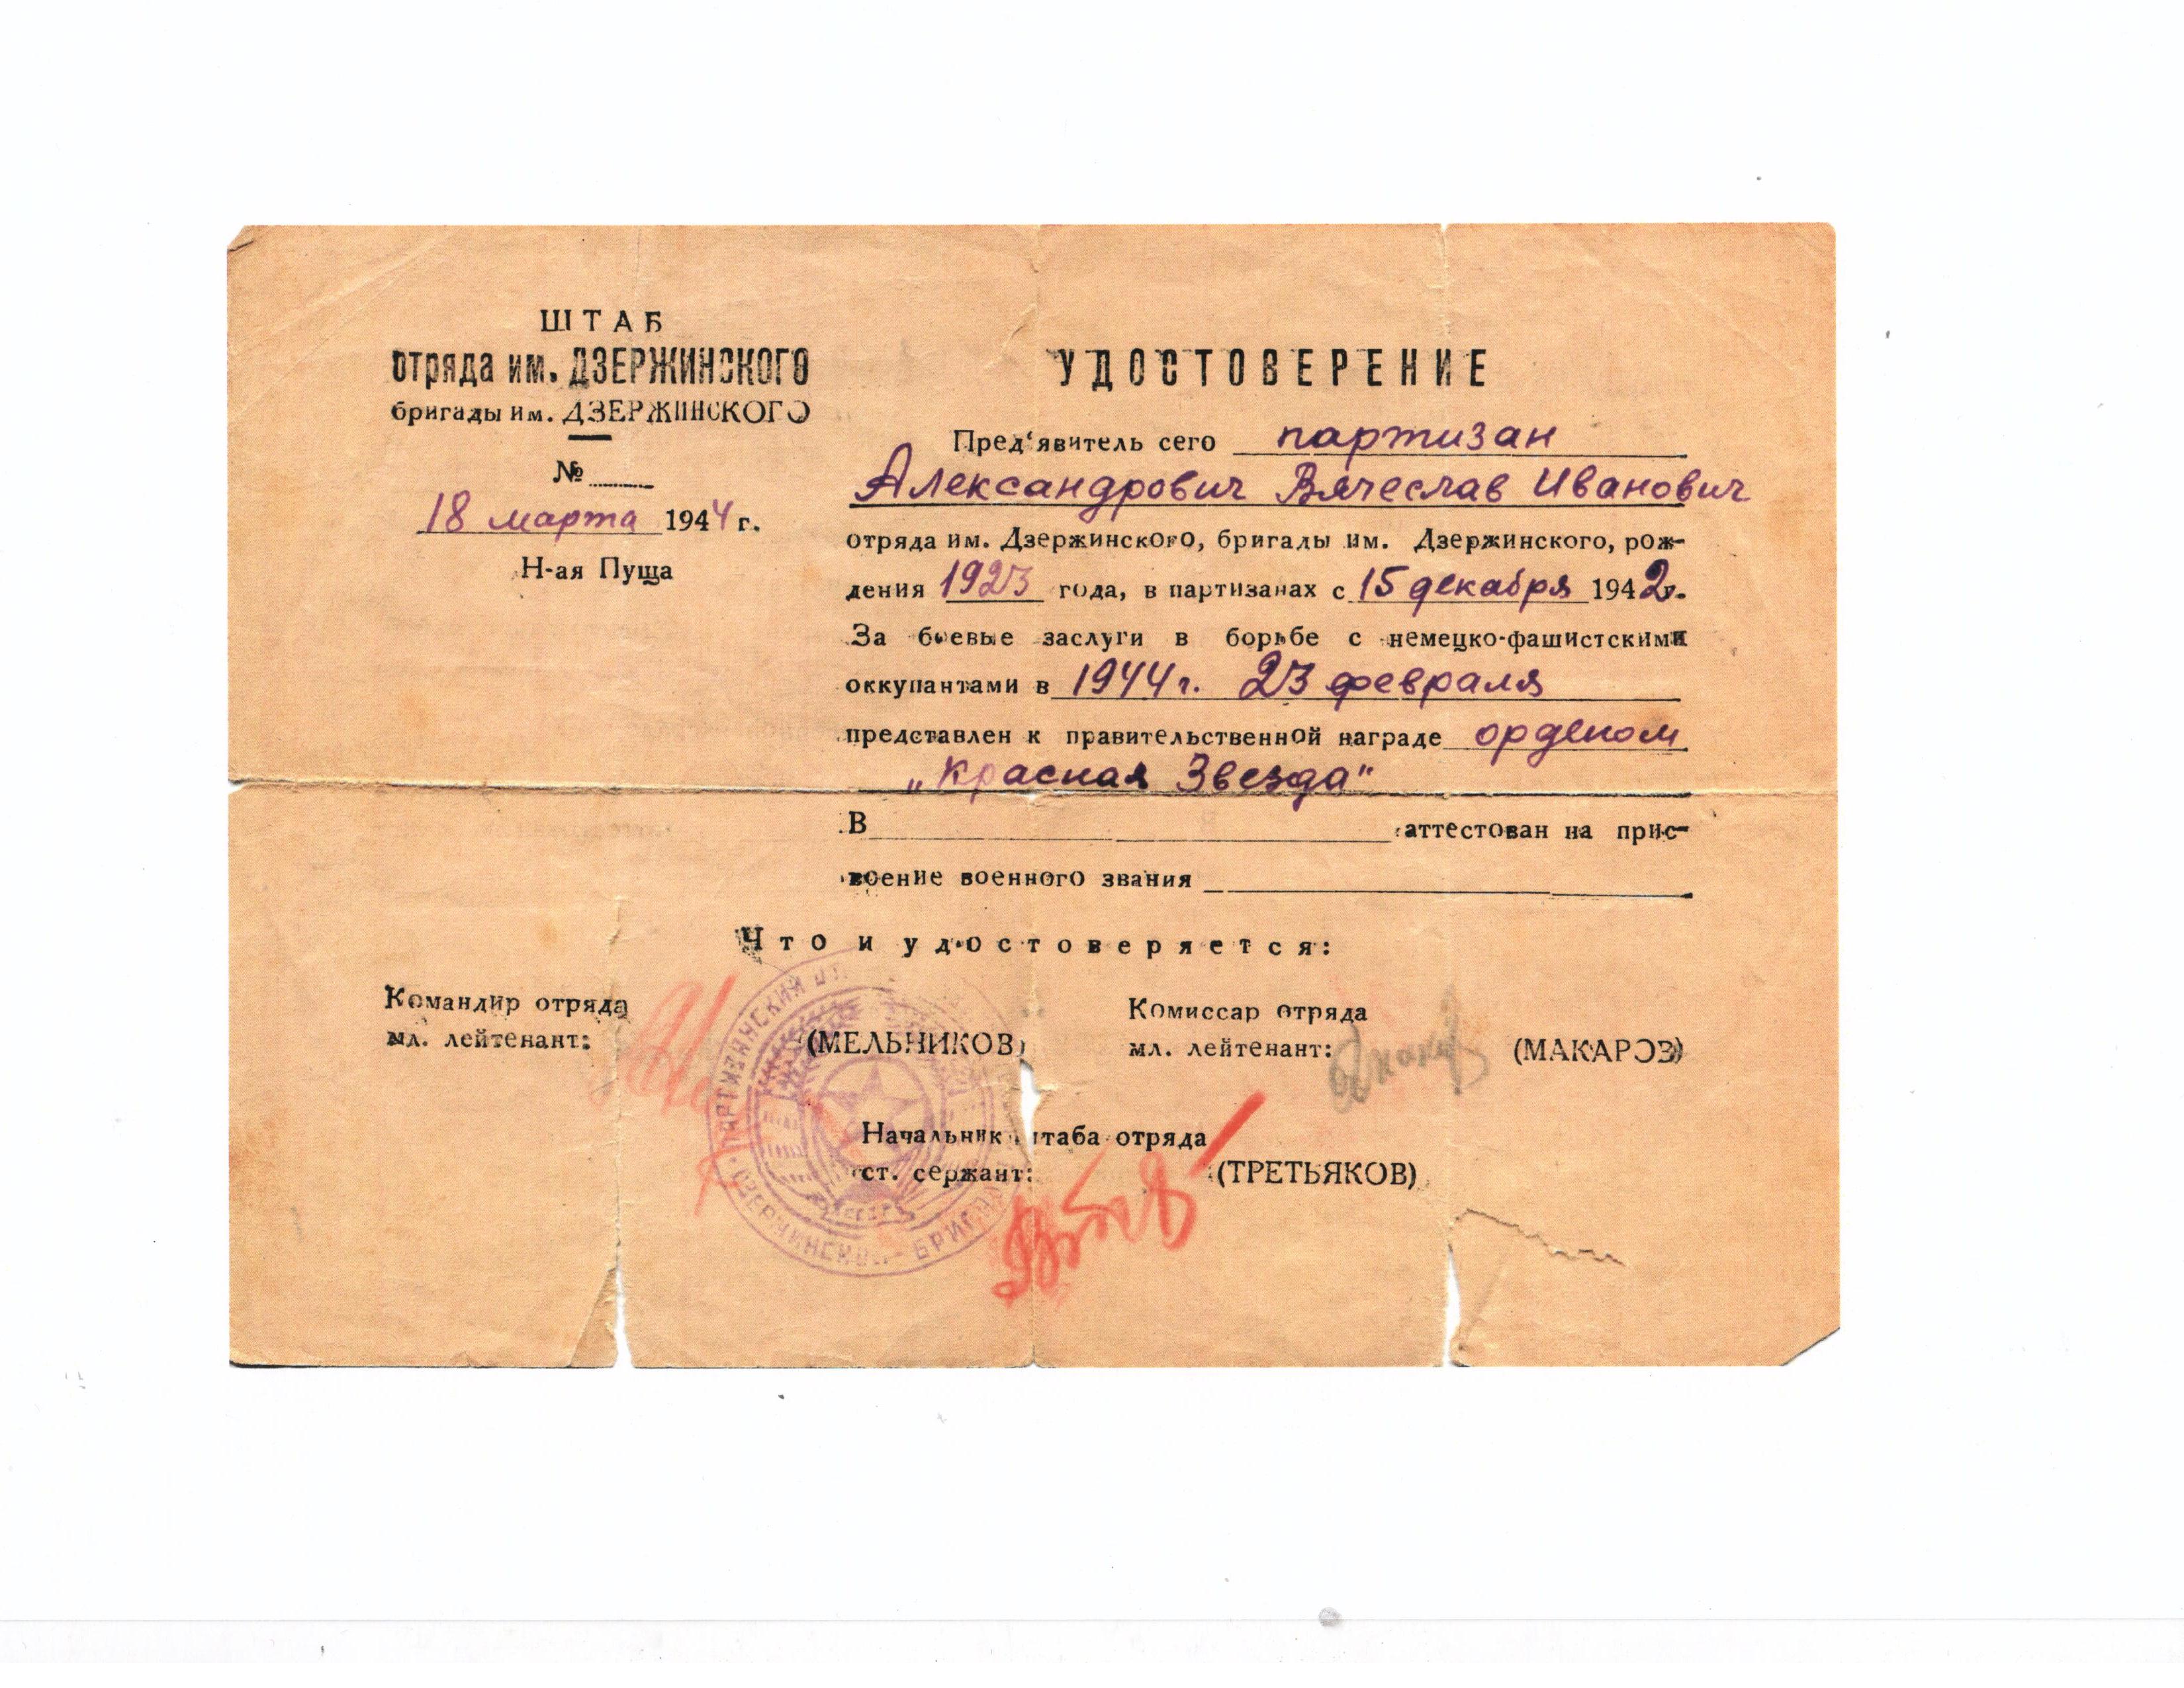 ШТАБ
отряда им. ДЗЕРЖИНСКОГО
бригады им. ДЗЕРЖИНСКОГО
№
18 марта 1944 г.
Н-ая Пуща
УДОСТОВЕРЕНИЕ
Пред‘явитель сего партизан
Александрович Вячеслав Иванович
отряда им. Дзержинского, бригады им. Дзержинского, рож-
дения 1923 года, в партизанах с 15 декабря 1942г.
За боевые заслуги в борьбе с немецко-фашистскими
оккупантами в 1944г. 23 февраля
представлен к правительственной награде орденом
„Красная Звезда"
В аттестован на прис-
воение военного звания
Что и удостоверяется:
Командир отряда
мл. лейтенант: (МЕЛЬНИКОВ)
Комиссар отряда
мл. лейтенант: (МАКАРОВ)
Начальник штаба отряда
ст. сержант: (ТРЕТЬЯКОВ)
ПАРТИЗАНСКИЙ